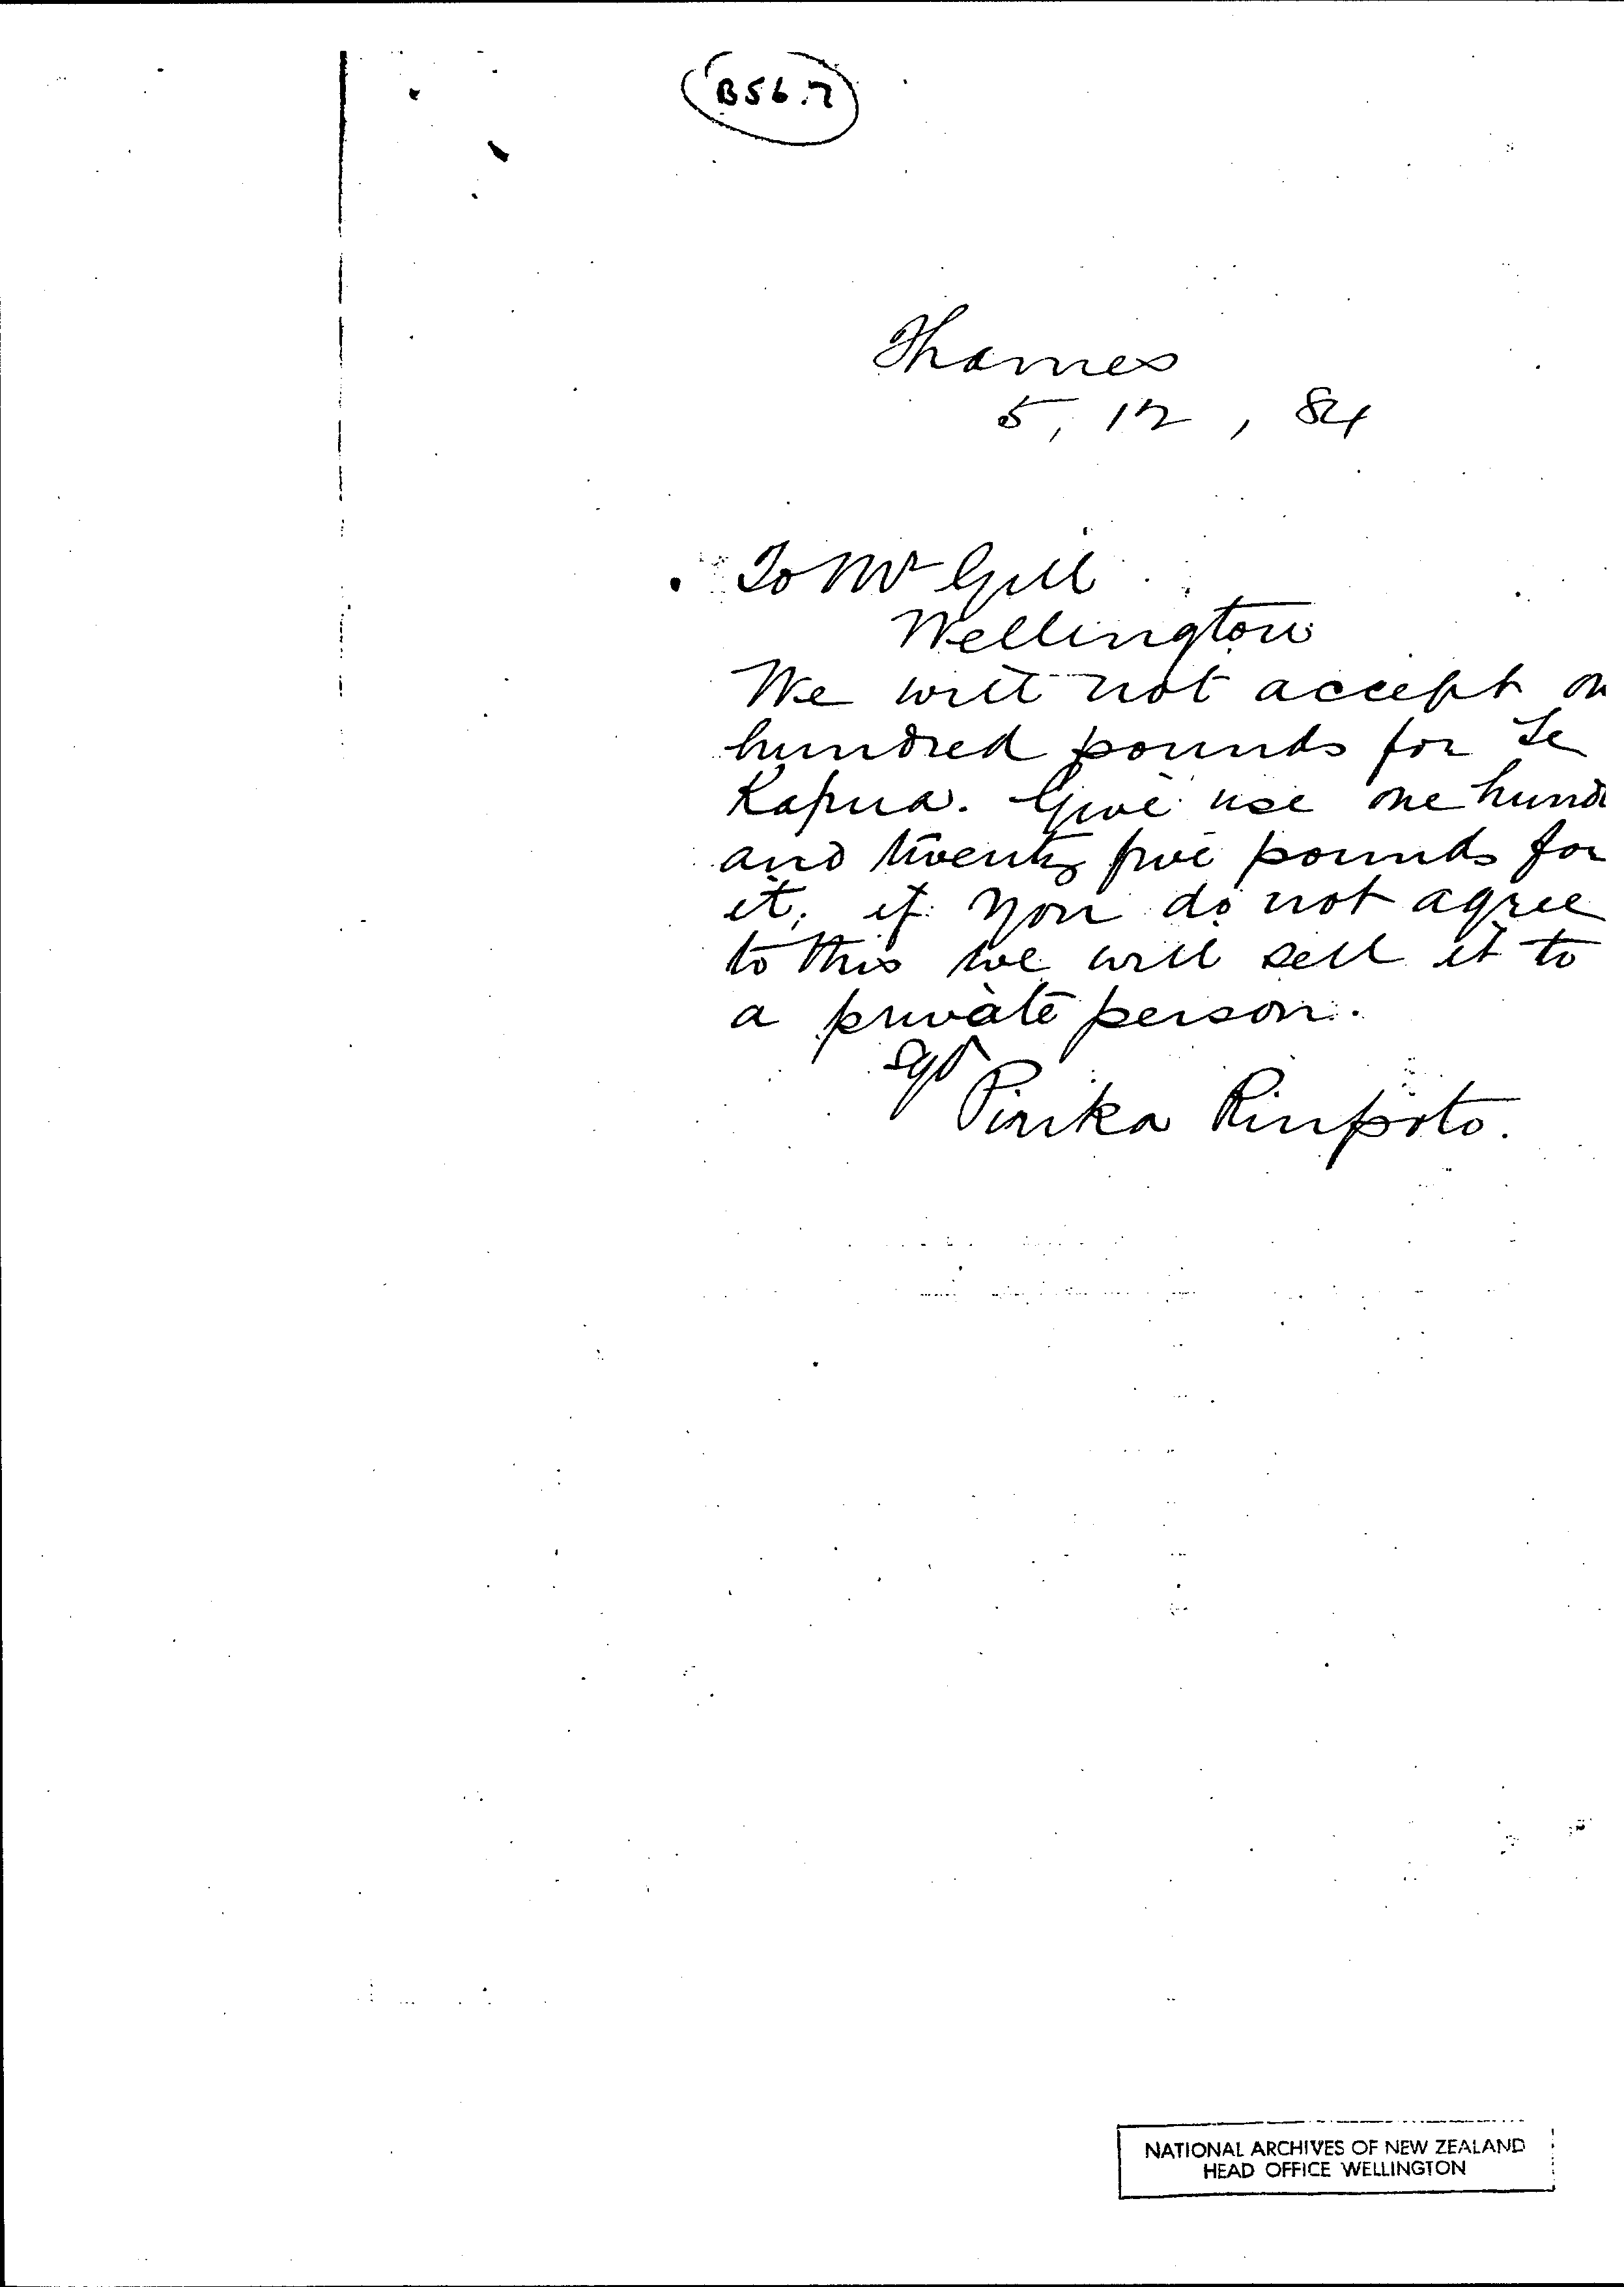 B56.7
Thames
5, 12, 84
To Mr Gill
Wellington
We will not accept on
hundred pounds for Te
Kapua. Give use one hund
and twenty five pounds for
it, if you do not agree
to this we will sell it to
a private person.
Sgd
Piirika Rinpoto.
NATIONAL ARCHIVES OF NEW ZEALAND
HEAD OFFICE WELLINGTON